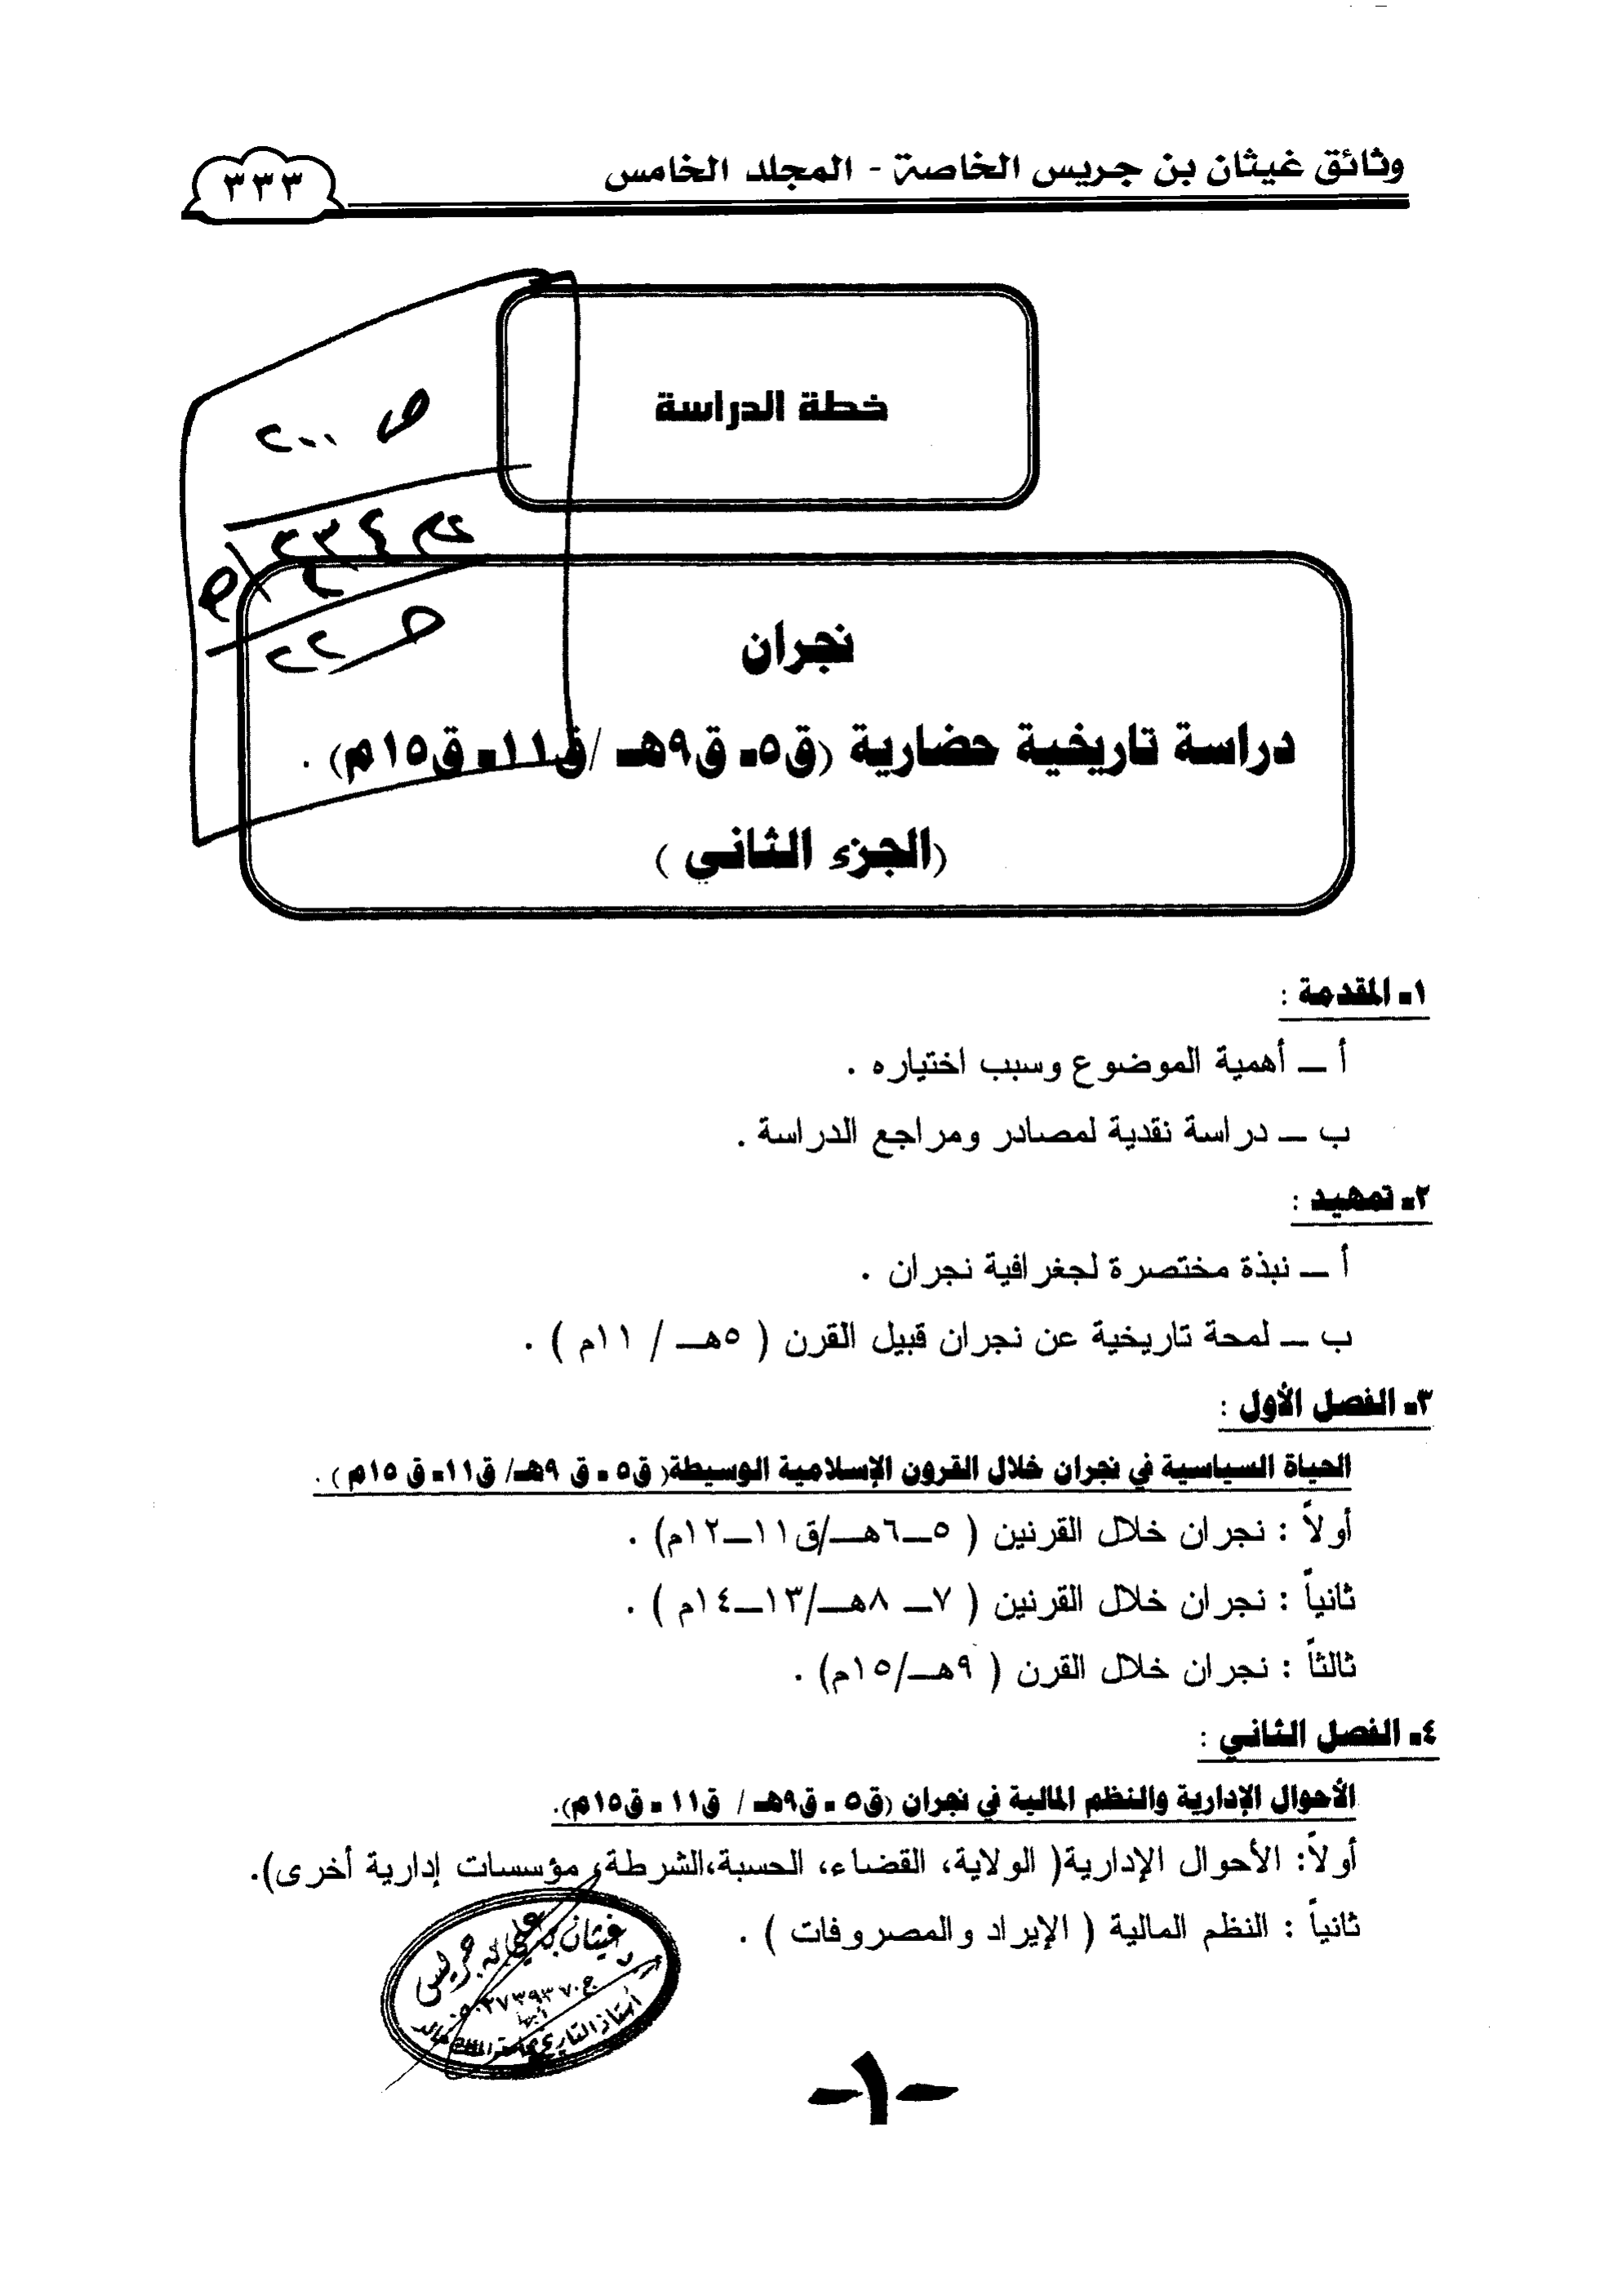 وثائق غيثان بن جريس الخاصة - المجلد الخامس
٣٣٣
خطة الدراسة
ص ٢٠٠
٢٣٤
٢٢
نجران
دراسة تاريخية حضارية (ق٥- ق٩هـ /ق١١- ق١٥م) .
(الجزء الثاني )
١- المقدمة :
أ ـ أهمية الموضوع وسبب اختياره .
ب ـ دراسة نقدية لمصادر ومراجع الدراسة .
٢- تمهيد :
أ ـ نبذة مختصرة لجغرافية نجران .
ب ـ لمحة تاريخية عن نجران قبيل القرن ( ٥هـ / ١١م ) .
٣- الفصل الأول :
الحياة السياسية في نجران خلال القرون الإسلامية الوسيطة( ق٥ - ق ٩هـ/ ق١١- ق ١٥م ) .
أولاً : نجران خلال القرنين ( ٥ـ٦هـ/ق١١ـ١٢م) .
ثانياً : نجران خلال القرنين ( ٧ـ ٨هـ/١٣ـ١٤م ) .
ثالثاً : نجران خلال القرن ( ٩هـ/١٥م) .
٤- الفصل الثاني :
الأحوال الإدارية والنظم المالية في نجران (ق٥ - ق٩هـ / ق١١ - ق١٥م).
أولاً: الأحوال الإدارية( الولاية، القضاء، الحسبة،الشرطة، مؤسسات إدارية أخرى).
ثانياً : النظم المالية ( الإيراد والمصروفات ) .
غيثان بن علي بن جريس
ج٠٥٠٢٧٣٩٣٧٠
أبها
أستاذ التاريخ بجامعة الملك خالد
-١-